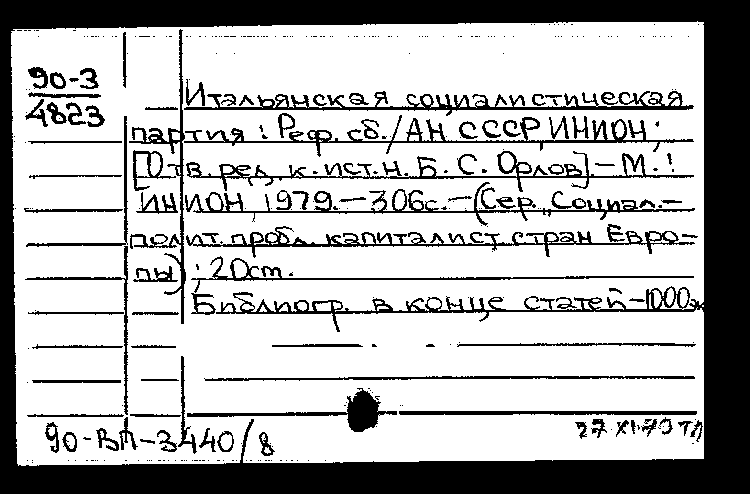 90-3
4823
Итальянская социалистическая
партия : Реф. сб./АН СССР, ИНИОН ;
[Отв. ред. к. ист. н. Б. С. Орлов]. – М. :
ИНИОН, 1979. – 306с. – (Сер. "Социал.-
полит. пробл. капиталист. стран Евро-
пы) ; 20ст.
Библиогр. в конце статей – 1000эк
90-ВП-3440/8
27 XI-79